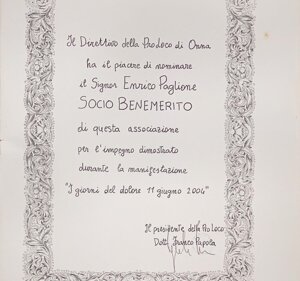 Il Direttivo della Pro Loco di Onna
ha il piacere di nominare
il Signor Enrico Paglione
SOCIO BENEMERITO
di questa associazione
per l'impegno dimostrato
durante la manifestazione
"I giorni del dolore 11 giugno 2004"
Il presidente della Pro Loco
Dott. Franco Papola